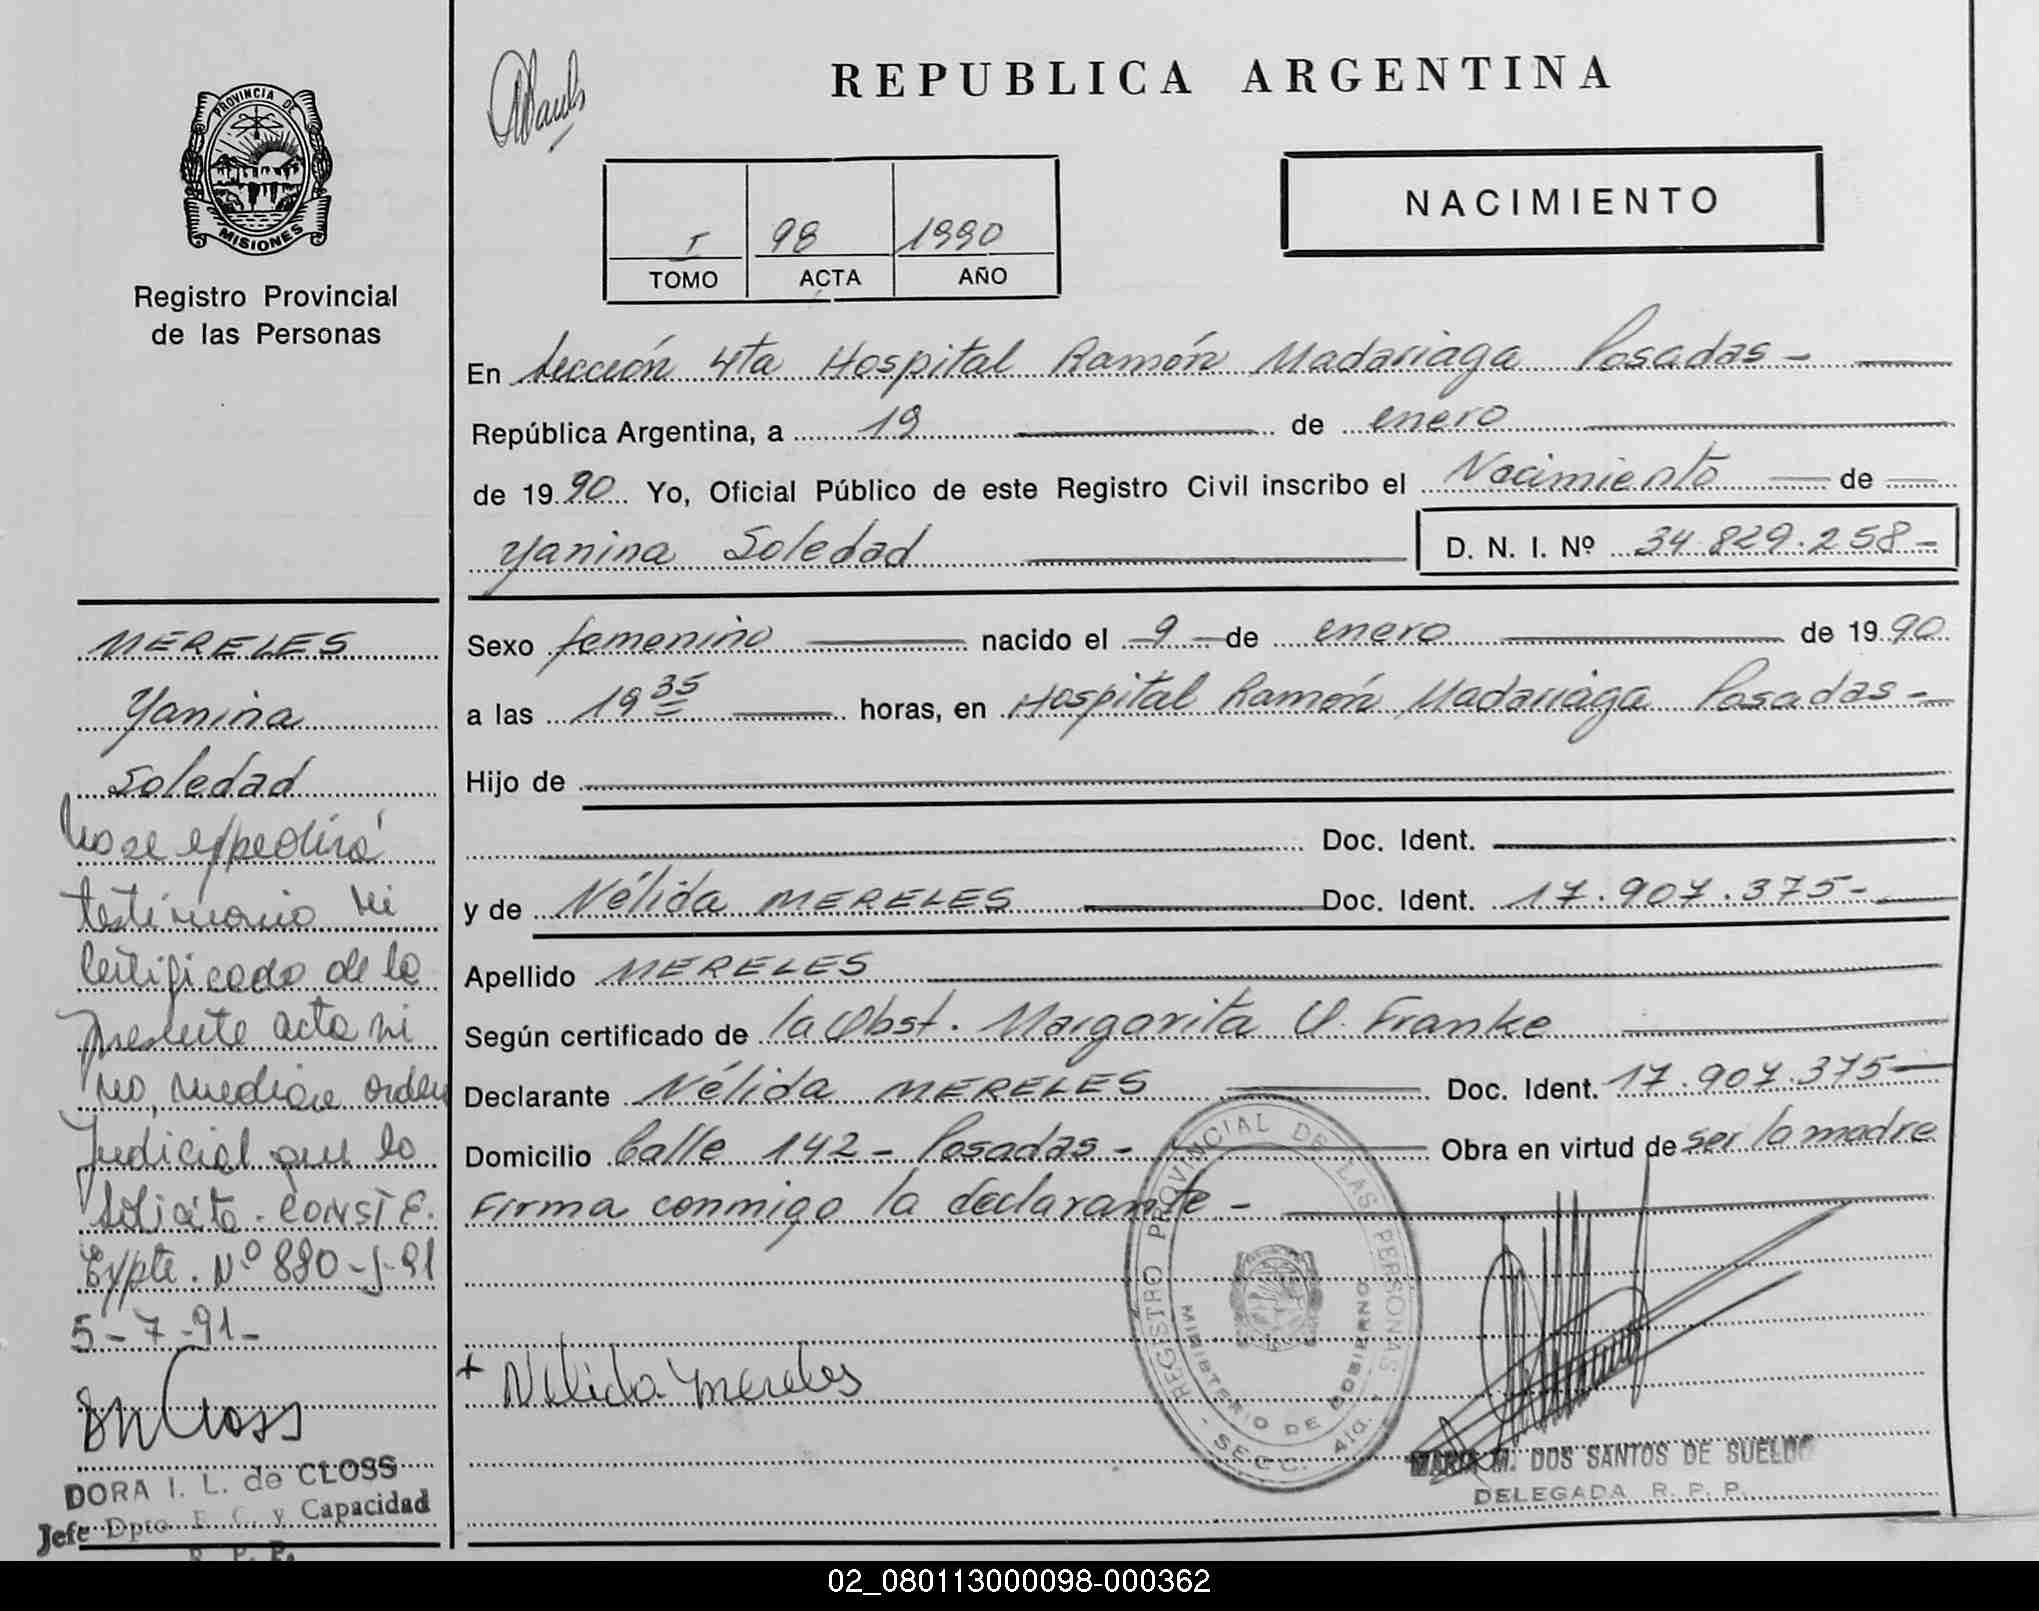 PROVINCIA DE
MISIONES
Registro Provincial
de las Personas
REPUBLICA ARGENTINA
NACIMIENTO
I 98 1990
TOMO ACTA AÑO
En Sección 4ta Hospital Ramón Madariaga Posadas -
República Argentina, a 19 de enero
de 1990 Yo, Oficial Público de este Registro Civil inscribo el Nacimiento de
Yanina Soledad D. N. I. Nº 34.829.258-
Sexo femenino nacido el 9 de enero de 1990
a las 19 35 horas, en Hospital Ramón Madariaga Posadas -
Hijo de
Doc. Ident.
y de Nélida MERELES Doc. Ident. 17.907.375-
Apellido MERELES
Según certificado de la Obst. Margarita U. Franke
Declarante Nélida MERELES Doc. Ident. 17.907.375-
Domicilio Calle 142 - Posadas - Obra en virtud de ser la madre
Firma conmigo la declarante -
+ Nelida Mereles
REGISTRO PROVINCIAL DE LAS PERSONAS
MINISTERIO DE GOBIERNO
- SECC. 4ta. -
MARIA M. DOS SANTOS DE SUELDO
DELEGADA R. P. P.
MERELES
Yanina
Soledad
No se expedirá
testimonio ni
certificado de la
presente acta si
no, mediare orden
Judicial que lo
solicite. CONSTE.
Expte. Nº 880-J-91
5-7-91-
DORA I. L. de CLOSS
Jefe Dpto. E. C. y Capacidad
R. P. P.
02_080113000098-000362